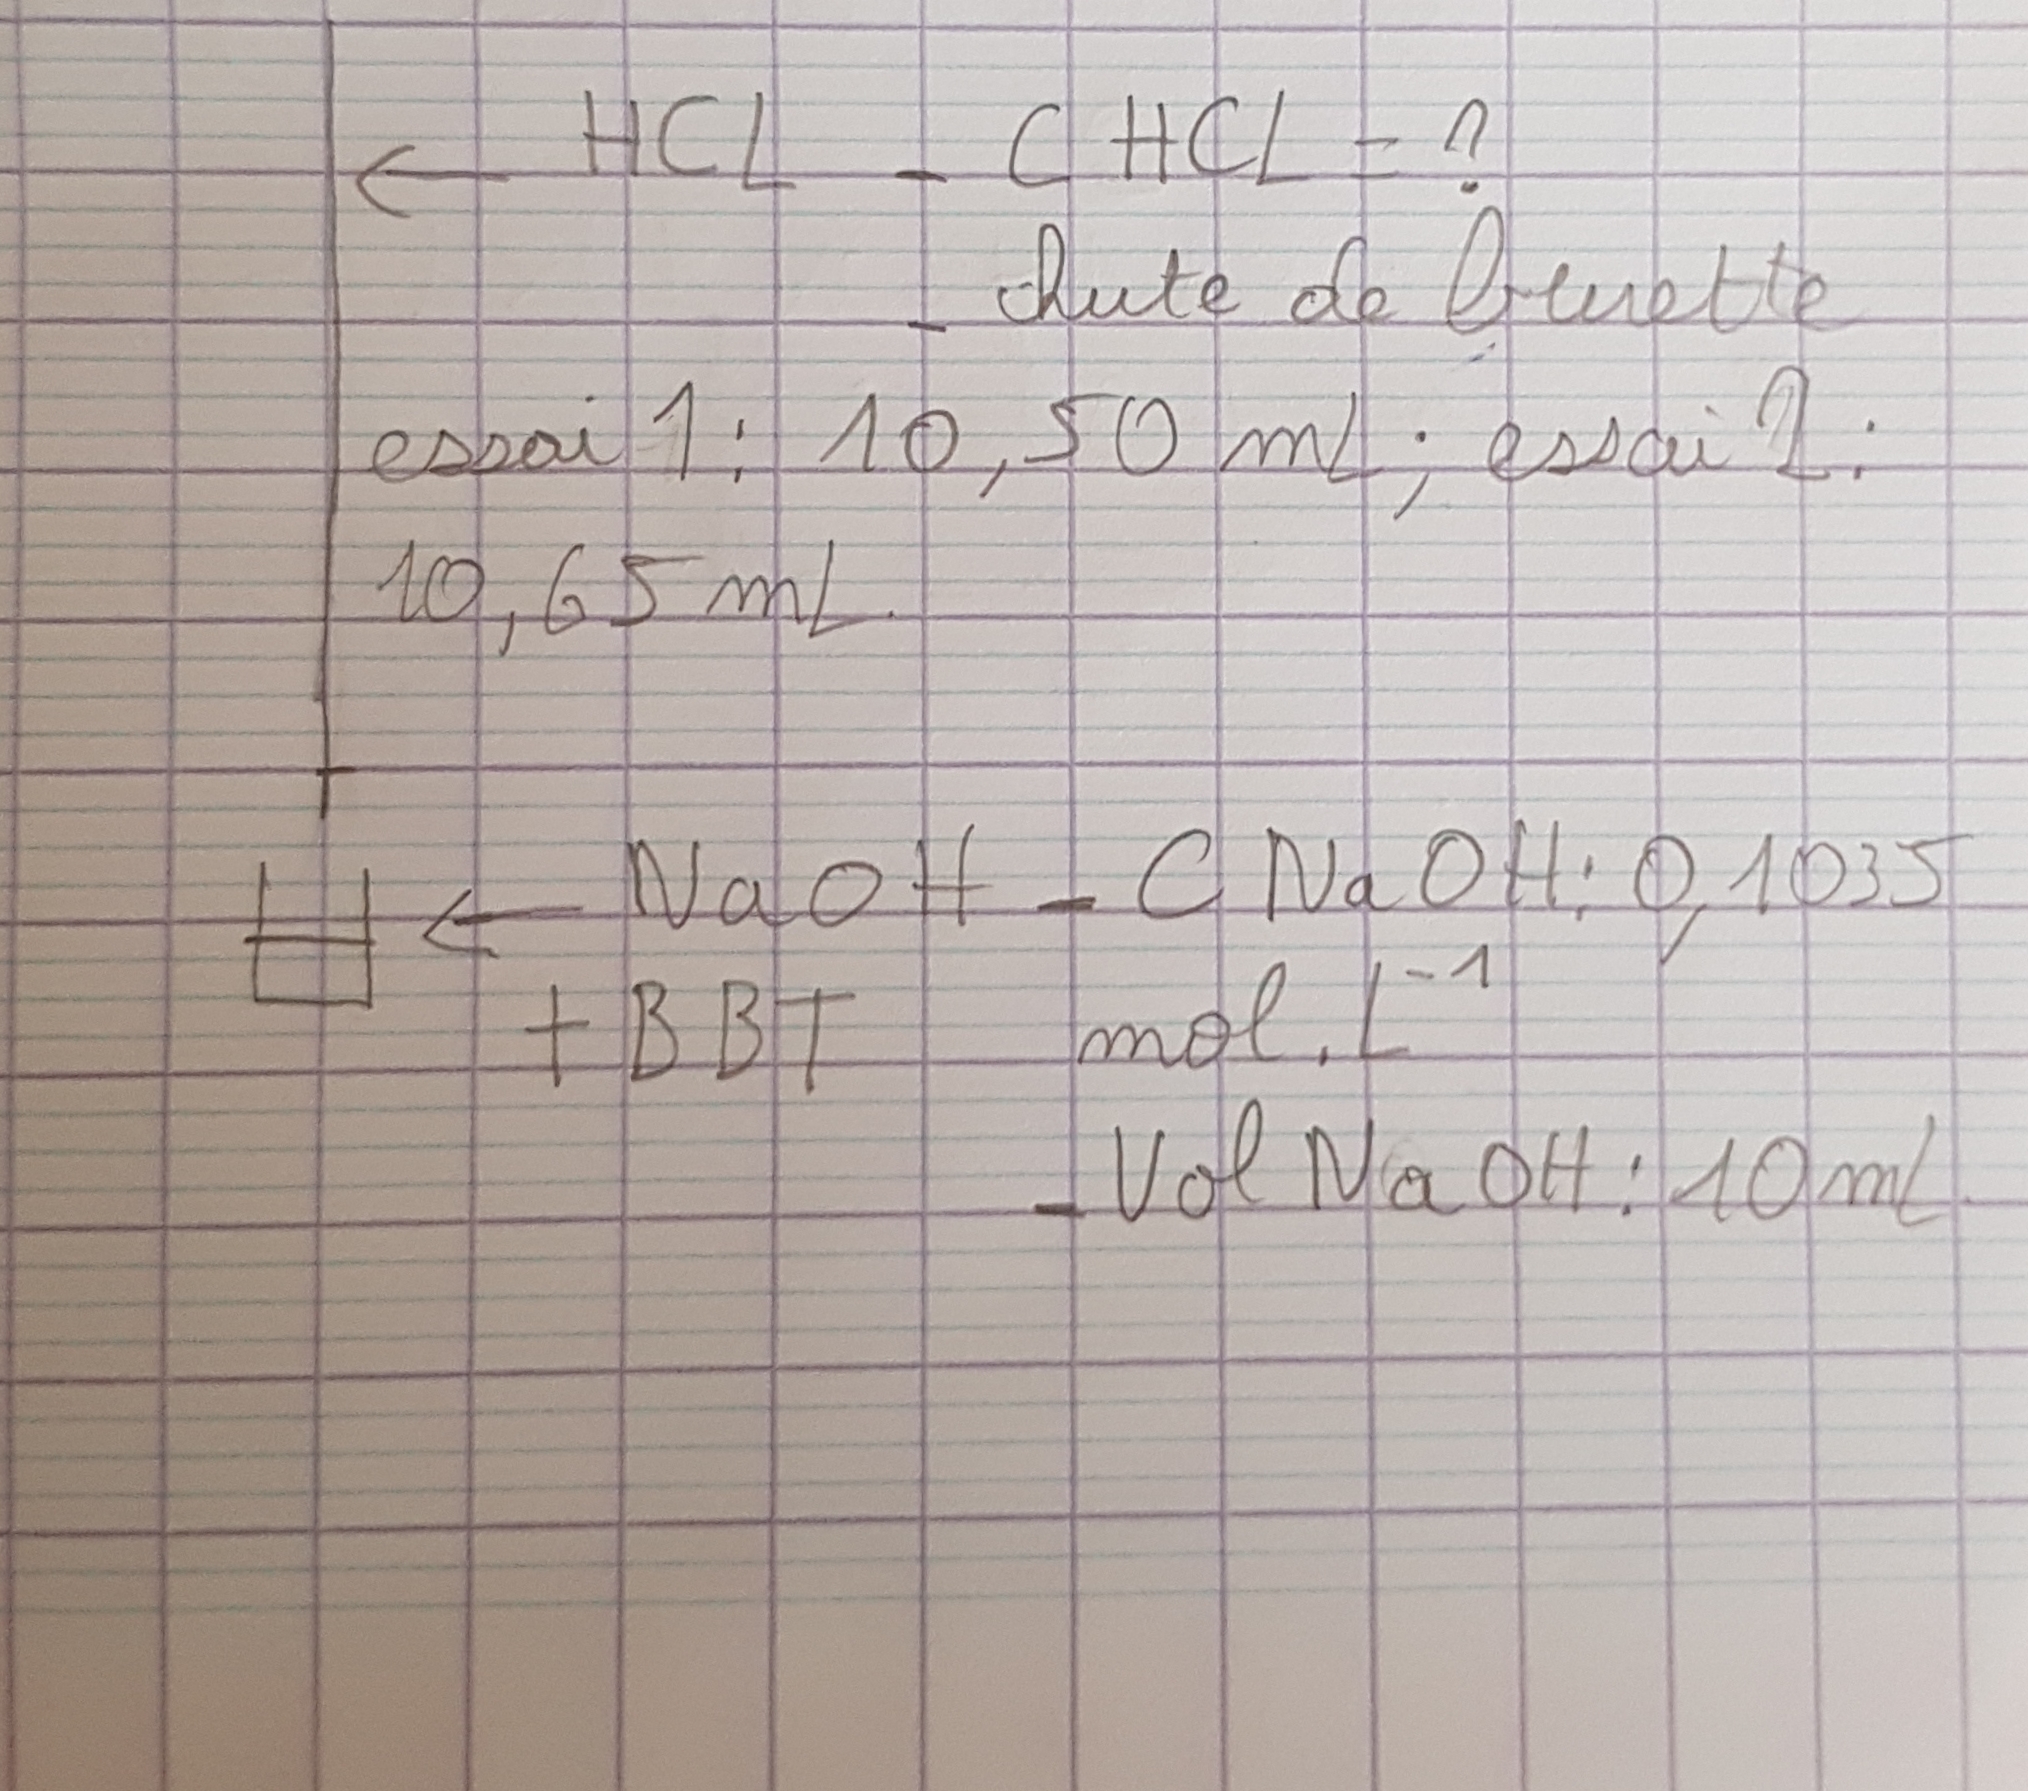 ← HCL - CHCL = ?
- chute de burette
essai 1 : 10,50 mL ; essai 2 :
10,65 mL.
← NaOH - C NaOH : 0,1035
+ BBT mol.L⁻¹
- Vol NaOH : 10 mL.